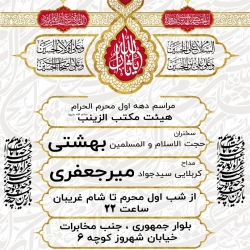 یا ثارالله
السلام علی الحسین
و علی علی بن الحسین
و علی اولاد الحسین
و علی اصحاب الحسین
مراسم دهه اول محرم الحرام
هیئت مکتب الزینب
سخنران
حجت الاسلام و المسلمین بهشتی
مداح
کربلایی سیدجواد میرجعفری
از شب اول محرم تا شام غریبان
ساعت ۲۲
بلوار جمهوری ، جنب مخابرات
خیابان شهروز کوچه ۶